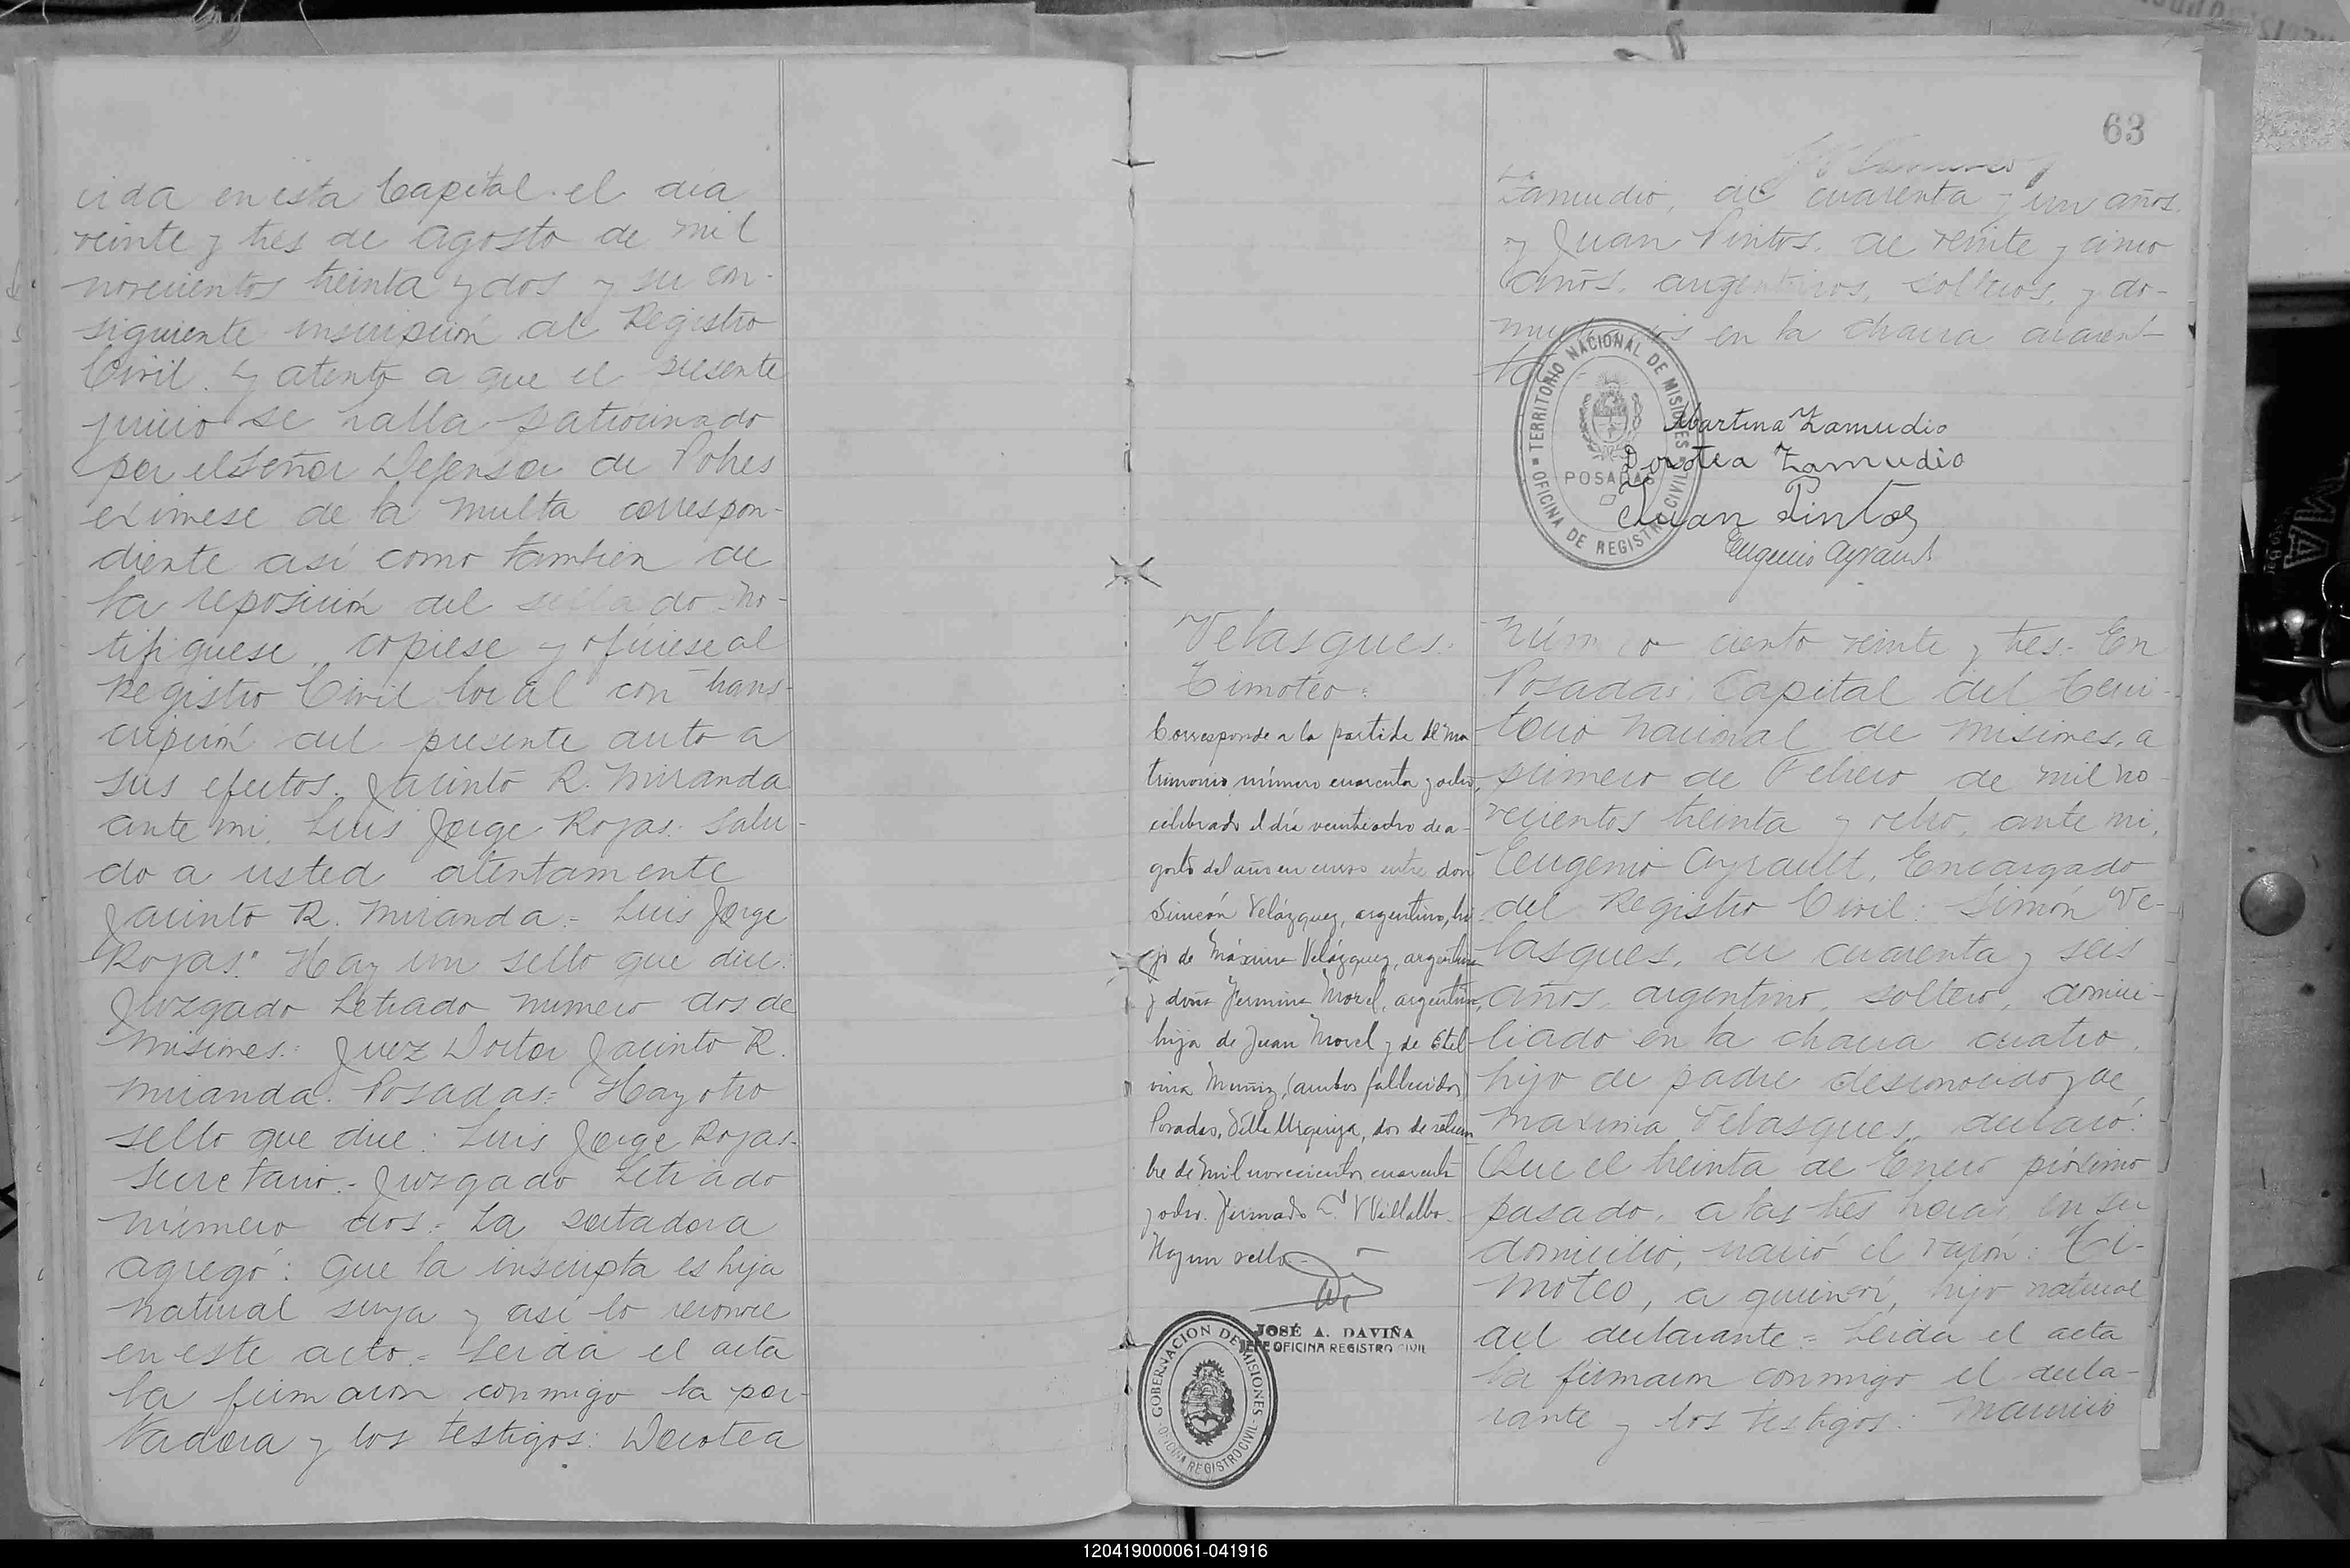 cida en esta Capital el dia
veinte y tres de Agosto de mil
novecientos treinta y dos y su con-
siguiente inscripción al Registro
Civil. Y atento a que el presente
juicio se halla patrocinado
por el Señor Defensor de Pobres
eximese de la multa correspon-
diente así como tambien de
la reposición del sellado. No-
tifiquese, copiese y ofíciese al
Registro Civil local con trans-
cripción del presente auto a
sus efectos. Jacinto R. Miranda
ante mi. Luis Jorge Rojas. Salu-
do a usted atentamente
Jacinto R. Miranda = Luis Jorge
Rojas." Hay un sello que dice:
Juzgado Letrado numero dos de
Misiones: Juez Doctor Jacinto R.
Miranda. Posadas = Hay otro
sello que dice: Luis Jorge Rojas.
Secretario.- Juzgado Letrado
número dos = La portadora
agregó: Que la inscripta es hija
natural suya y así lo reconoce
en este acto.= Leida el acta
la firmaron conmigo la por-
tadora y los testigos: Dorotea
63
Zamudio, de cuarenta y un años
y Juan Pintos, de veinte y cinco
años, argentinos, solteros, y do-
miciliados en la chacra cuaren-
ta
TERRITORIO NACIONAL DE MISIONES
POSADAS
OFICINA DE REGISTRO CIVIL
Martina Zamudio
Dorotea Zamudio
Juan Pintos
Eugenio Ayrault
Velasques.
Timoteo =
Corresponde a la partida de ma
trimonio número cuarenta y ocho,
celebrado el día veinticuatro de a-
gosto del año en curso entre don
Simeón Velázquez, argentino, hi-
jo de Máxima Velázquez, argentina
y doña Fermina Morel, argentina,
hija de Juan Morel y de Etel-
vina Muñiz, (ambos fallecidos)
Posadas, Villa Urquiza, dos de setiem
bre de mil novecientos cuarenta
y ocho. Firmado Villalba.
Hay un sello.-
JOSÉ A. DAVIÑA
JEFE OFICINA REGISTRO CIVIL
GOBERNACION DE MISIONES
OFICINA REGISTRO CIVIL
Número ciento veinte y tres.- En
Posadas, Capital del Terri-
torio Nacional de Misiones, a
primero de Febrero de mil no-
vecientos treinta y ocho, ante mi,
Eugenio Ayrault, Encargado
del Registro Civil: Simón Ve-
lasques, de cuarenta y seis
años, argentino, soltero, domici-
liado en la chacra cuatro,
hijo de padre desconocido y de
Maxima Velasques, declaró:
Que el treinta de Enero próximo
pasado, a las tres horas, en su
domicilio, nació el varón: Ti-
moteo, a quien ví, hijo natural
del declarante = Leida el acta
la firmaron conmigo el decla-
rante y los testigos: Mauricio
120419000061-041916